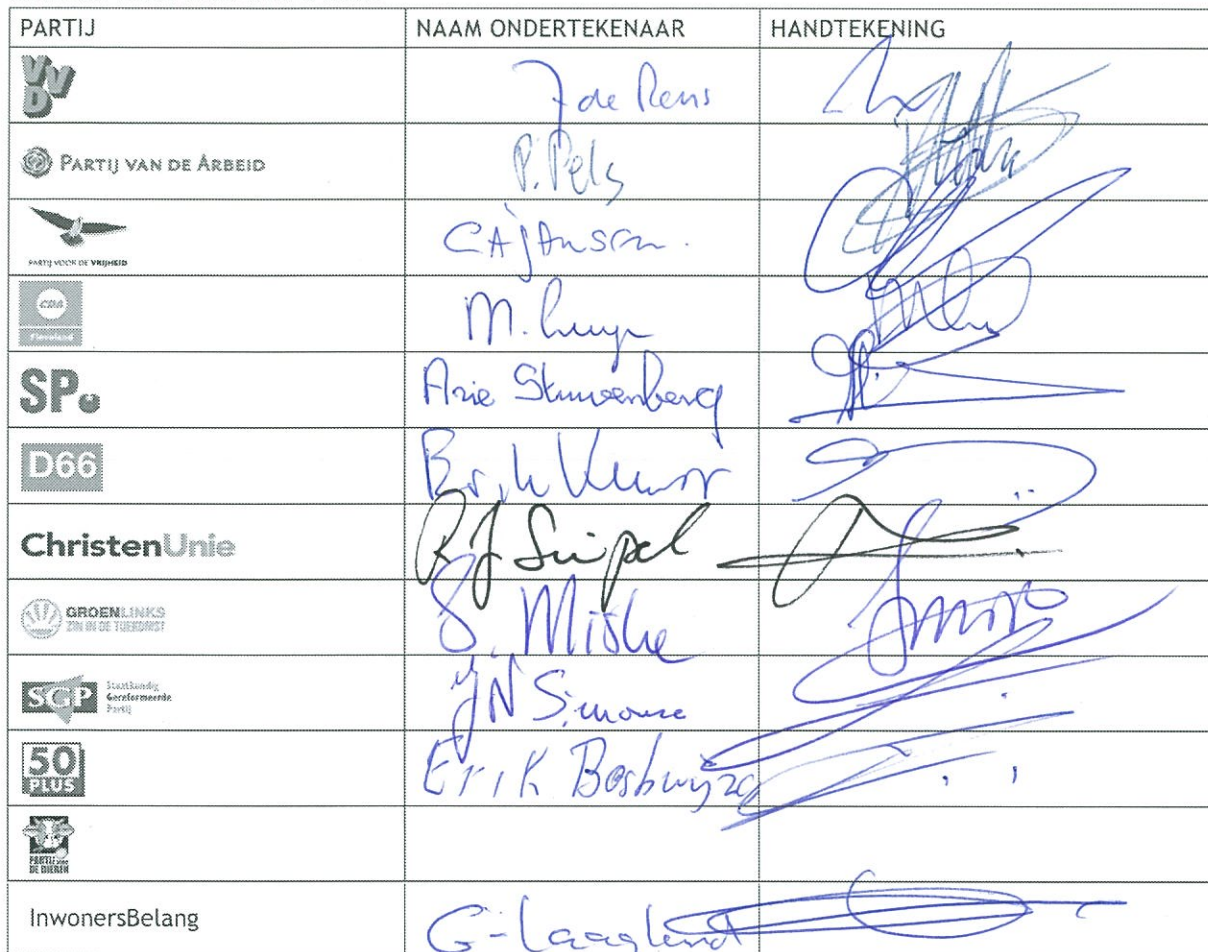 PARTIJ NAAM ONDERTEKENAAR HANDTEKENING
VVD J de Reus
PARTIJ VAN DE ARBEID P. Pels
PARTIJ VOOR DE VRIJHEID CAJansen.
CDA Flevoland M. Luyer
SP. Arie Stuivenberg
D66
ChristenUnie RJ Siepel
GROENLINKS S. Miske
ZIN IN DE TOEKOMST
SGP Staatkundig Gereformeerde Partij JN Simonse
50 PLUS Erik Boshuijzen
PARTIJ voor DE DIEREN
InwonersBelang G. Laagland